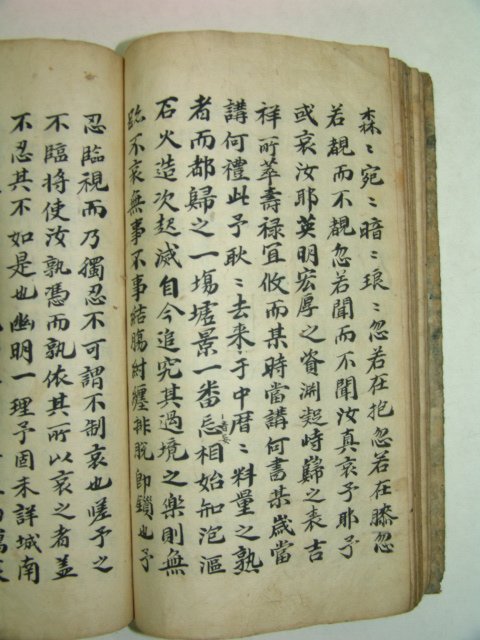 森〻宛〻暗〻琅〻忽若在抱忽若在膝忽
若覩而不覩忽若聞而不聞汝真哀予耶予
或哀汝耶英明宏厚之資渊嶷時歸之表吉
祥所萃壽祿宜攸而某時當講何書某歲當
講何禮此予耿〻去来于中曆〻料量之熟
者而都歸之一塲墟景一番忘相始知泡漚
石火造次起滅自今追究其過境之樂則無
不哀無事不事結膓紂纒排脫即鎖也予
忍臨視而乃獨忍不可謂不制哀也嗟予之
不臨將使汝孰憑而孰依其所以哀之者盖
不忍其不如是也幽明一理予固未詳城南